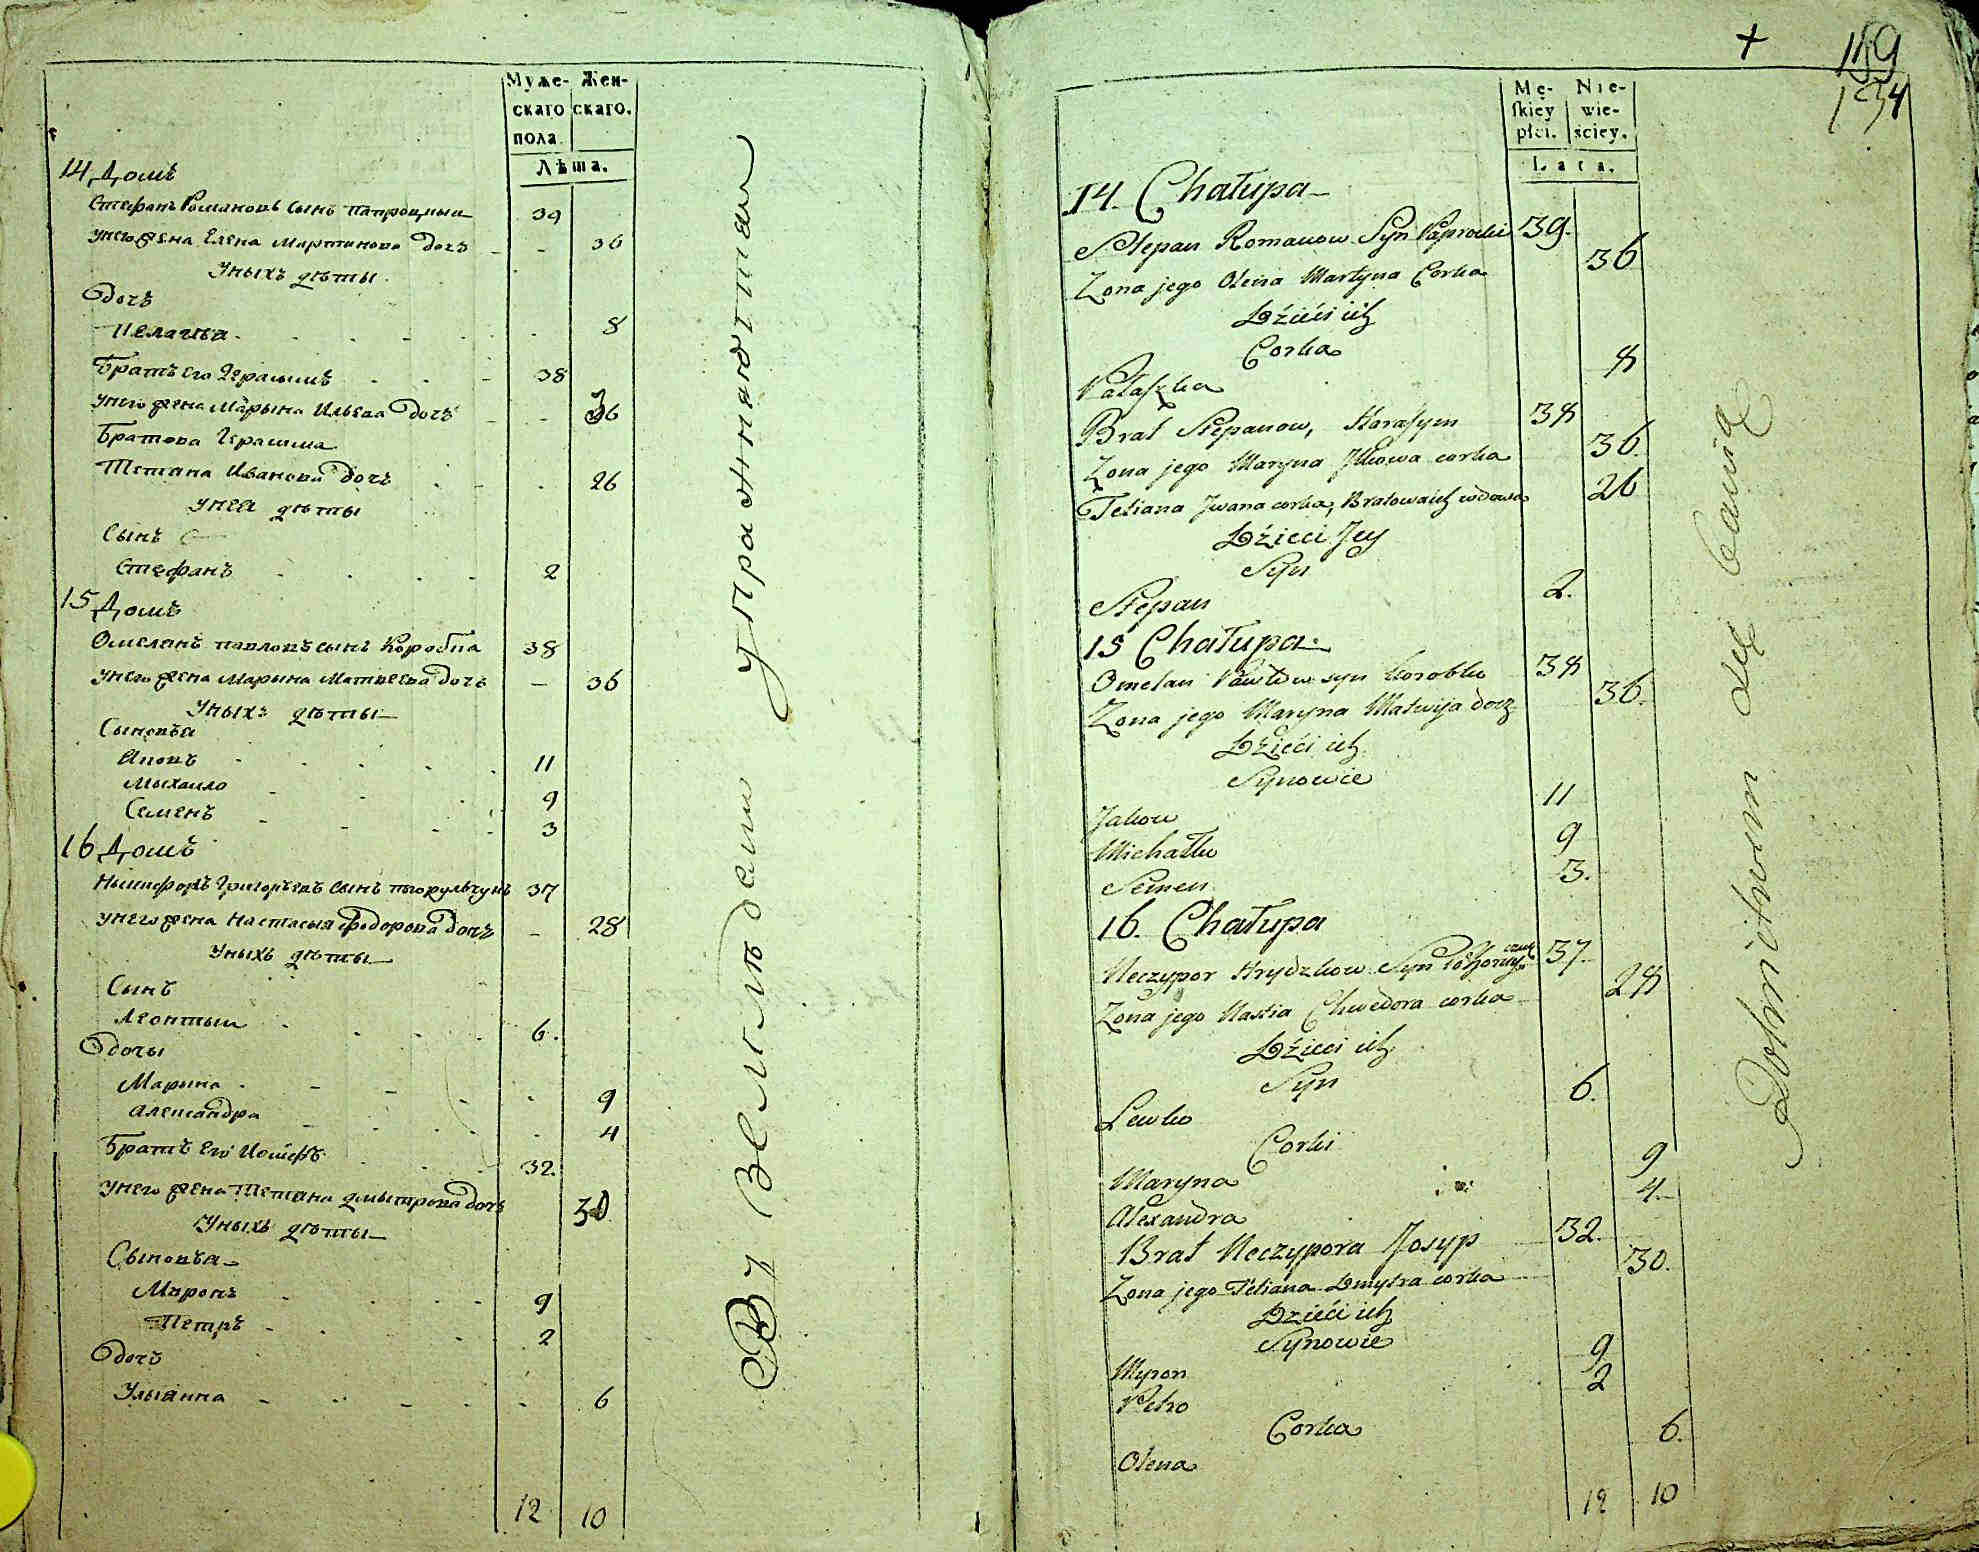 Муже-
скаго
пола
Жен-
скаго.
Лѣта.
14 Домъ
Стефанъ Романовъ сынъ 39
у него жена Елена Мартинова дочъ 36
у ныхъ дѣты
дочъ
Пелагѣя 8
Братъ его Герасимъ 38
у него жена Марына Ильева дочъ 36
Братова Герасима
Тетяна Иванова дочъ 26
у нея дѣты
Сынъ
Стефанъ 2
15 Домъ
Омелянъ Павловъ сынъ Коробка 38
у него жена Марина Матвѣева дочъ 36
у ныхъ дѣты
Сыновѣя
Яковъ 11
Мыхайло 9
Семенъ 3
16 Домъ
Григорѣевъ сынъ 37
у него жена Настасыя Федорова дочъ 28
у ныхъ дѣты
Сынъ
Леонтый 6.
дочы
Марина 9
Александра 4
Братъ его Иосифъ 32.
у него жена Тетяна Дмытрова дочъ 30
у ныхъ дѣты
Сыновѣя
Миронъ 9
Петръ 2
дочъ
Улыянна 6
12 10
Въ земледѣлии упражняются
+
159
134
Mę-
skiey
płci.
Nie-
wie-
ściey.
Lata.
14. Chałupa
Stepan Romanow Syn Paprocki 39.
Zona jego Olena Martyna Corka 36
Dzieci ich
Corka
Pałaszka 8
Brat Stepanow, Harasym 38
Zona jego Maryna Jlkowa corka 36.
Tetiana Jwana corka, Bratowa ich wdowa 26
Dzieci Jey
Syn
Stepan 2.
15 Chałupa
Omelan Pawłow syn Korobka 38
Zona jego Maryna Matwija docz 36.
Dzieci ich
Synowie
Jakow 11
Michałko 9
Semen 3.
16. Chałupa
Neczypor Hrydzkow Syn 37.
Zona jego Nastia Chwedora corka 28
Dzieci ich
Syn
Lewko 6.
Corki
Maryna 9
Alexandra 4
Brat Neczypora Josyp 32.
Zona jego Tetiana Dmytra corka 30.
Dzieci ich
Synowie
Myron 9
Petro 2
Corka
Olena 6.
12 10
Rolnictwem się bawią